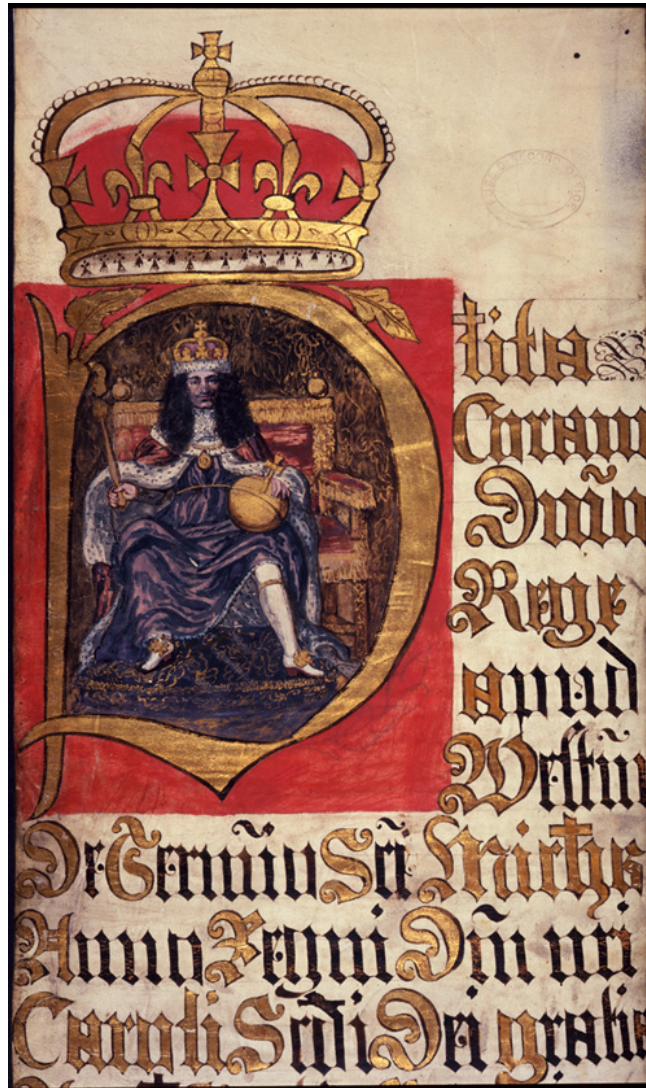 Placita
Coram
Dnō
Rege
apud
Westm̄
De Termīno Scī Mich
Anno Regni Dnī nrī
Caroli Scdi Dei gratia